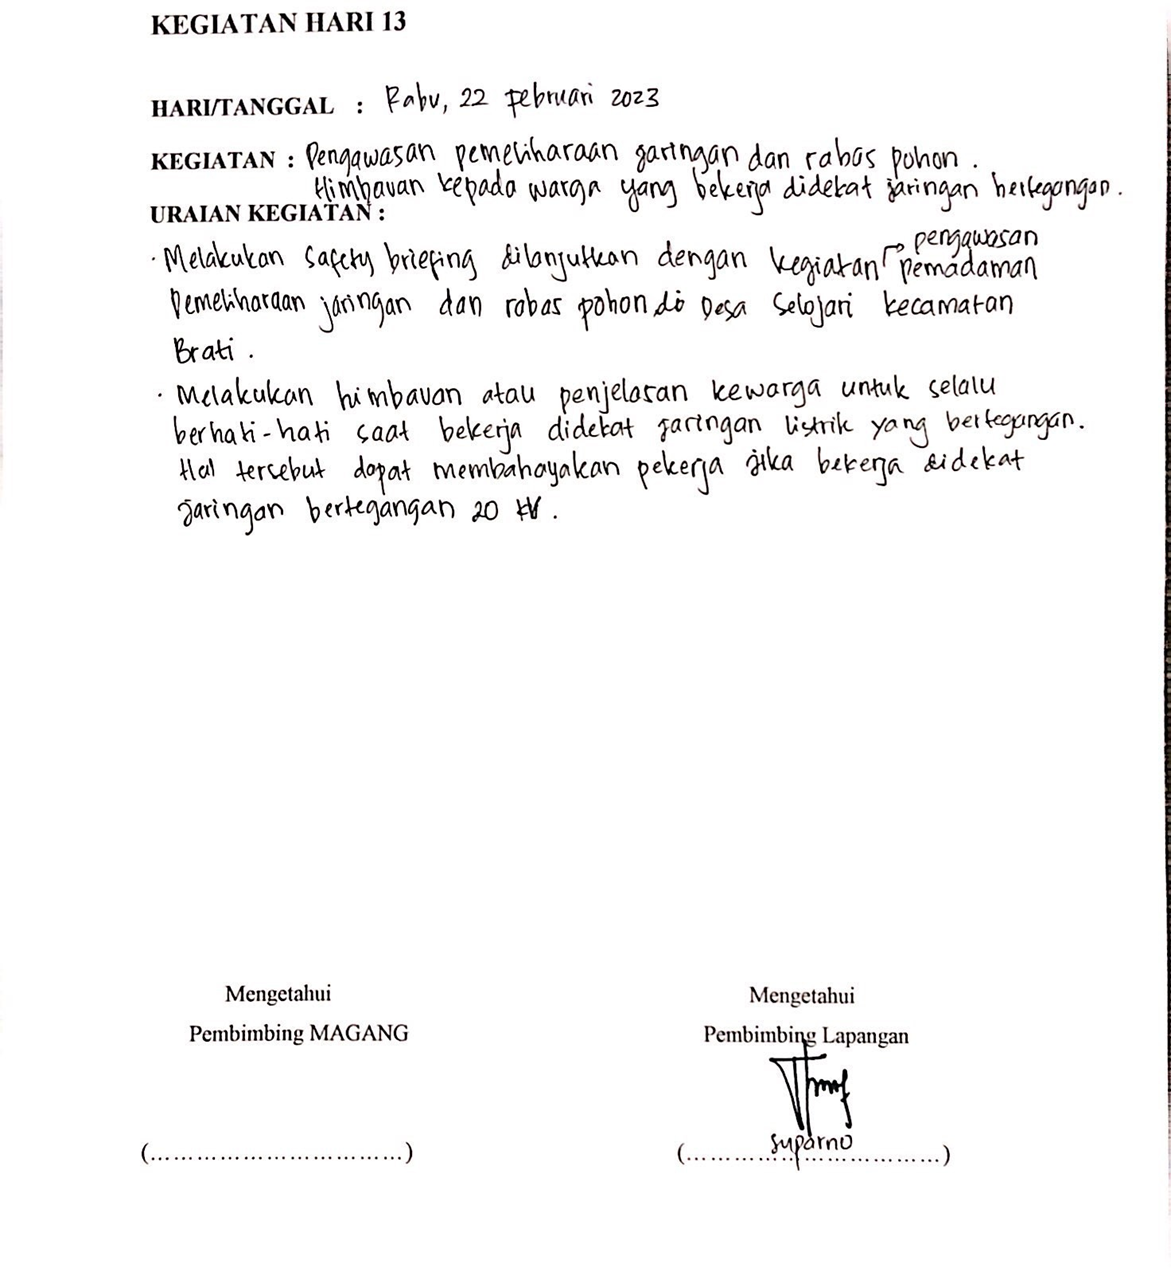 KEGIATAN HARI 13
HARI/TANGGAL : Rabu, 22 Februari 2023
KEGIATAN : Pengawasan pemeliharaan jaringan dan rabas pohon.
Himbauan kepada warga yang bekerja didekat jaringan bertegangan.
URAIAN KEGIATAN :
· Melakukan safety briefing dilanjutkan dengan kegiatan pengawasan pemadaman
Pemeliharaan jaringan dan rabas pohon di Desa Selojari kecamatan
Brati.
· Melakukan himbauan atau penjelasan kewarga untuk selalu
berhati-hati saat bekerja didekat jaringan listrik yang bertegangan.
Hal tersebut dapat membahayakan pekerja jika bekerja didekat
jaringan bertegangan 20 kV.
Mengetahui
Pembimbing MAGANG
(..............................)
Mengetahui
Pembimbing Lapangan
Suparno
(..............................)